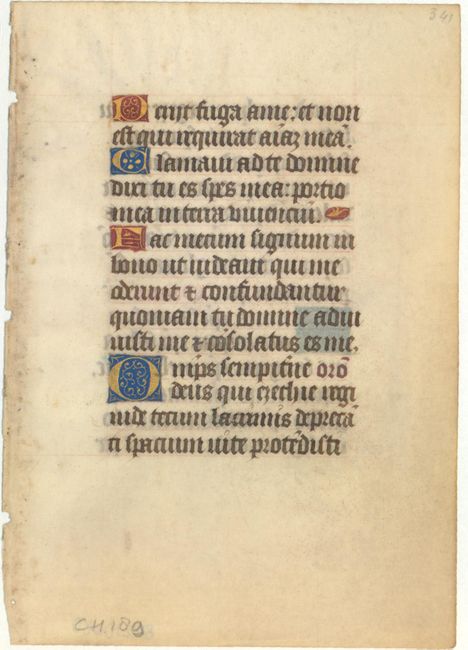 341
Perijt fuga a me: et non
est qui requirat aĩaȝ meã.
Clamaui ad te domine
dixi tu es spes mea: portio
mea in terra viuenciũ.
Fac mecum signum in
bono ut uideant qui me
oderunt ⁊ confundantur
quoniam tu domine adiu
uisti me ⁊ cõsolatus es me.
Omp̃s sempitñe orõ
deus qui ezechie regi
iude tecum lacrimis deprecã
ti spacium uite protẽdisti
CH.189